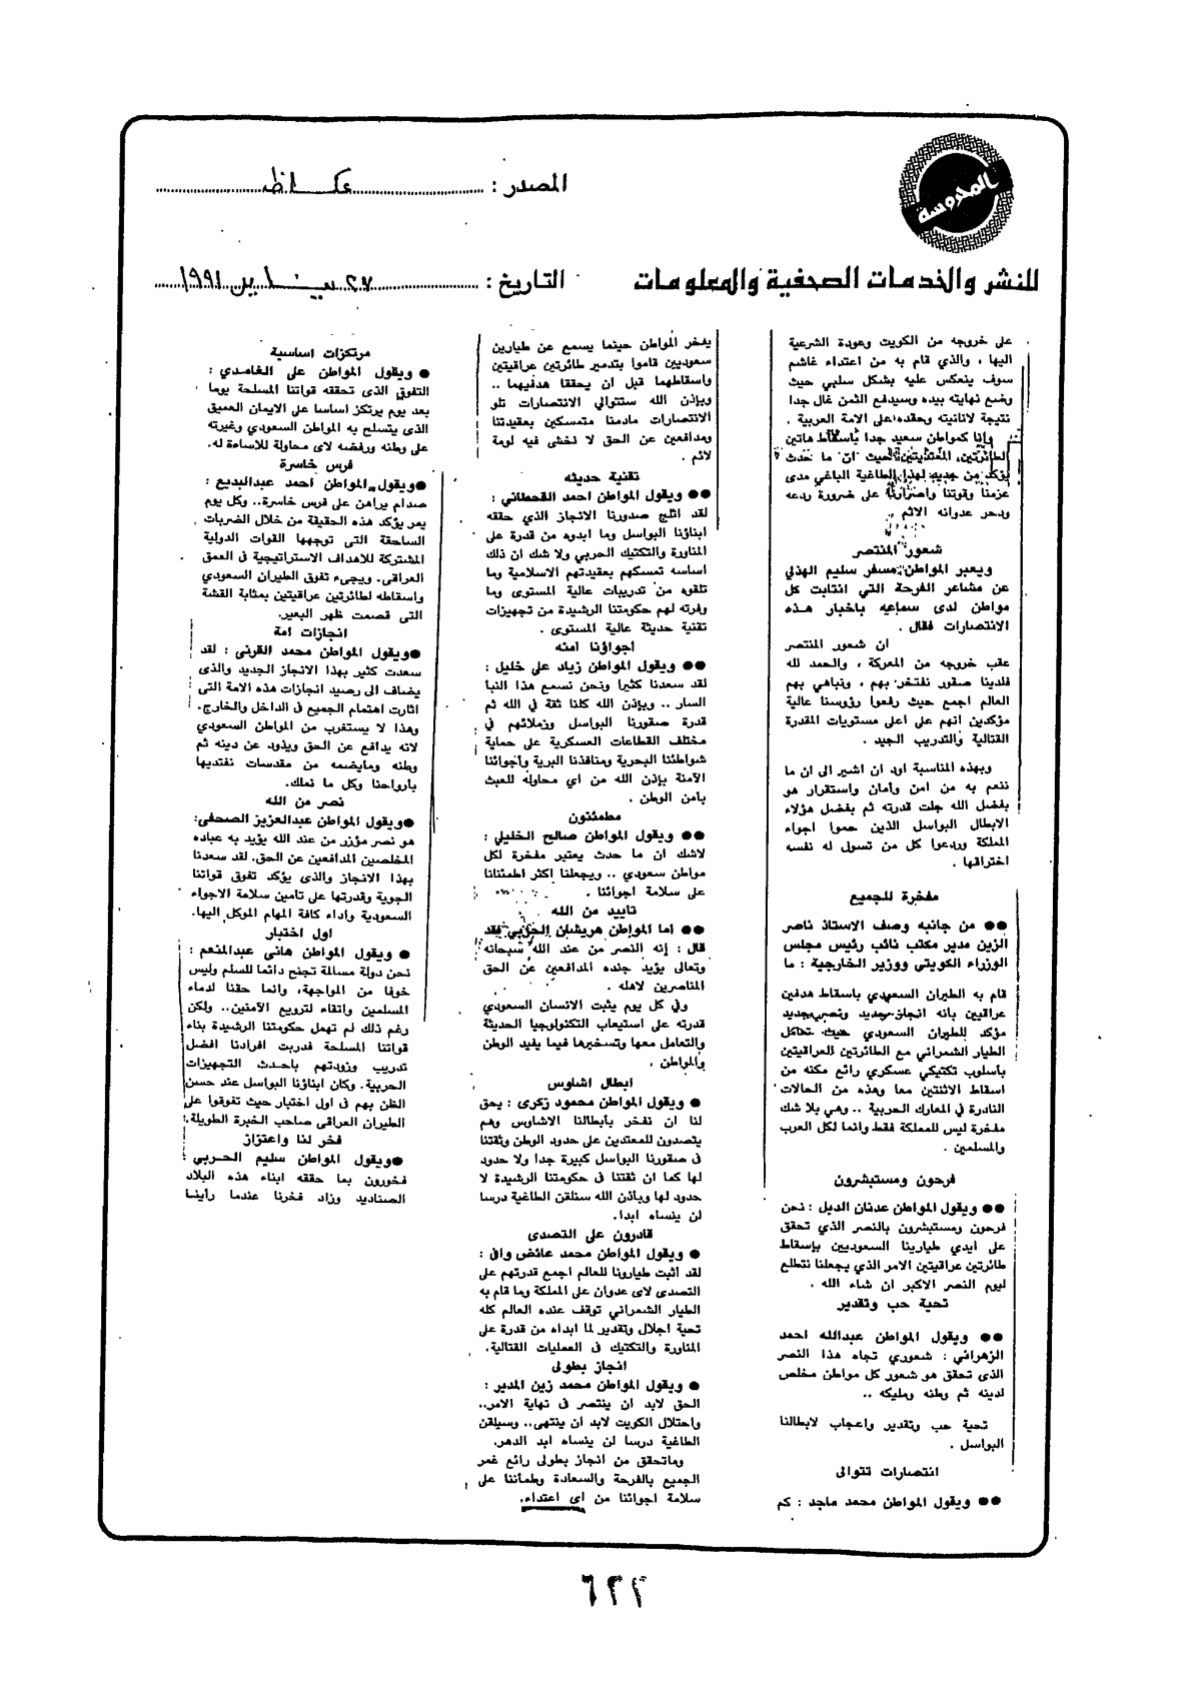 المحروسة
المصدر : عكاظ
للنشر والخدمات الصحفية والمعلومات
التاريخ : ٢٧ يناير ١٩٩١
على خروجه من الكويت وعودة الشرعية
اليها ، والذي قام به من اعتداء غاشم
سوف ينعكس عليه بشكل سلبي حيث
وضع نهايته بيده وسيدفع الثمن غال جدا
نتيجة لانانيته وحقده على الامة العربية .
وانا كمواطن سعيد جدا باسقاط هاتين
الطائرتين المعتديتين حيث ان ما حدث
يؤكد من جديد لهذا الطاغية الباغي مدى
عزمنا وقوتنا واصرارنا على ضرورة ردعه
ودحر عدوانه الاثم .
شعور المنتصر
ويعبر المواطن مسفر سليم الهذلي
عن مشاعر الفرحة التي انتابت كل
مواطن لدى سماعه باخبار هذه
الانتصارات فقال .
ان شعور المنتصر
عقب خروجه من المعركة ، والحمد لله
فلدينا صقور نفتخر بهم ، ونباهي بهم
العالم اجمع حيث رفعوا رؤوسنا عالية
مؤكدين انهم على اعلى مستويات المقدرة
القتالية والتدريب الجيد .
وبهذه المناسبة اود ان اشير الى ان ما
ننعم به من امن وأمان واستقرار هو
بفضل الله جلت قدرته ثم بفضل هؤلاء
الابطال البواسل الذين حموا اجواء
المملكة وردعوا كل من تسول له نفسه
اختراقها .
مفخرة للجميع
●● من جانبه وصف الاستاذ ناصر
الزين مدير مكتب نائب رئيس مجلس
الوزراء الكويتي ووزير الخارجية : ما
قام به الطيران السعودي باسقاط هدفين
عراقيين بانه انجاز جديد ونصر جديد
مؤكد للطيران السعودي حيث تعاكل
الطيار الشمراني مع الطائرتين العراقيتين
بأسلوب تكتيكي عسكري رائع مكنه من
اسقاط الاثنتين معا وهذه من الحالات
النادرة في المعارك الحربية .. وهي بلا شك
مفخرة ليس للمملكة فقط وانما لكل العرب
والمسلمين .
فرحون ومستبشرون
●● ويقول المواطن عدنان الدبل : نحن
فرحون ومستبشرون بالنصر الذي تحقق
على ايدي طيارينا السعوديين بإسقاط
طائرتين عراقيتين الامر الذي يجعلنا نتطلع
ليوم النصر الاكبر ان شاء الله .
تحية حب وتقدير
●● ويقول المواطن عبدالله احمد
الزهراني : شعوري تجاه هذا النصر
الذى تحقق هو شعور كل مواطن مخلص
لدينه ثم وطنه ومليكه ..
تحية حب وتقدير واعجاب لابطالنا
البواسل .
انتصارات تتوالى
●● ويقول المواطن محمد ماجد : كم
يفخر المواطن حينما يسمع عن طيارين
سعوديين قاموا بتدمير طائرتين عراقيتين
واسقاطهما قبل ان يحققا هدفيهما ..
وبإذن الله ستتوالي الانتصارات تلو
الانتصارات مادمنا متمسكين بعقيدتنا
ومدافعين عن الحق لا نخشى فيه لومة
لائم .
تقنية حديثه
●● ويقول المواطن احمد القحطاني :
لقد اثلج صدورنا الانجاز الذي حققه
ابناؤنا البواسل وما ابدوه من قدرة على
المناورة والتكتيك الحربي ولا شك ان ذلك
اساسه تمسكهم بعقيدتهم الاسلامية وما
تلقوه من تدريبات عالية المستوى وما
وفرته لهم حكومتنا الرشيدة من تجهيزات
تقنية حديثة عالية المستوى .
اجواؤنا امنه
●● ويقول المواطن زياد على خليل :
لقد سعدنا كثيرا ونحن نسمع هذا النبا
السار .. وبإذن الله كلنا ثقة في الله ثم
قدرة صقورنا البواسل وزملائهم في
مختلف القطاعات العسكرية على حماية
شواطئنا البحرية ومنافذنا البرية وأجوائنا
الآمنة بإذن الله من أي محاوله للعبث
بأمن الوطن .
مطمئنون
●● ويقول المواطن صالح الخليلي :
لاشك ان ما حدث يعتبر مفخرة لكل
مواطن سعودي .. ويجعلنا اكثر اطمئنانا
على سلامة اجوائنا .
تأييد من الله
●● اما المواطن هريشان الحربي فقد
قال : إنه النصر من عند الله سبحانه
وتعالى يؤيد جنده المدافعين عن الحق
المناصرين لاهله .
وفي كل يوم يثبت الانسان السعودي
قدرته على استيعاب التكنولوجيا الحديثة
والتعامل معها وتسخيرها فيما يفيد الوطن
والمواطن .
ابطال اشاوس
● ويقول المواطن محمود زكرى : يحق
لنا ان نفخر بأبطالنا الاشاوس وهم
يتصدون للمعتدين على حدود الوطن وثقتنا
فى صقورنا البواسل كبيرة جدا ولا حدود
لها كما ان ثقتنا فى حكومتنا الرشيدة لا
حدود لها وبإذن الله سنلقن الطاغية درسا
لن ينساه ابدا.
قادرون على التصدى
● ويقول المواطن محمد عائض وافى :
لقد اثبت طيارونا للعالم اجمع قدرتهم على
التصدى لاى عدوان على المملكة وما قام به
الطيار الشمراني توقف عنده العالم كله
تحية اجلال وتقدير لما ابداه من قدرة على
المناورة والتكتيك فى العمليات القتالية.
انجاز بطولى
● ويقول المواطن محمد زين المدير :
الحق لابد ان ينتصر فى نهاية الامر..
واحتلال الكويت لابد ان ينتهى.. وسيلقن
الطاغية درسا لن ينساه ابد الدهر.
وماتحقق من انجاز بطولى رائع غمر
الجميع بالفرحة والسعادة وطمأننا على
سلامة اجوائنا من أى اعتداء.
مرتكزات اساسية
● ويقول المواطن على الغامدي :
التفوق الذى تحققه قواتنا المسلحة يوما
بعد يوم يرتكز اساسا على الايمان العميق
الذى يتسلح به المواطن السعودي وغيرته
على وطنه ورفضه لاى محاولة للاساءة له.
فرس خاسرة
●ويقول المواطن احمد عبدالبديع :
صدام يراهن على فرس خاسرة.. وكل يوم
يمر يؤكد هذه الحقيقة من خلال الضربات
الساحقة التى توجهها القوات الدولية
المشتركة للاهداف الاستراتيجية فى العمق
العراقى. ويجىء تفوق الطيران السعودي
واسقاطه لطائرتين عراقيتين بمثابة القشة
التى قصمت ظهر البعير.
انجازات امة
●ويقول المواطن محمد القرنى : لقد
سعدت كثير بهذا الانجاز الجديد والذى
يضاف الى رصيد انجازات هذه الامة التى
اثارت اهتمام الجميع فى الداخل والخارج.
وهذا لا يستغرب من المواطن السعودي
لانه يدافع عن الحق ويذود عن دينه ثم
وطنه ومايضمه من مقدسات نفتديها
بأرواحنا وكل ما نملك.
نصر من الله
●ويقول المواطن عبدالعزيز الصحفى:
هو نصر مؤزر من عند الله يؤيد به عباده
المخلصين المدافعين عن الحق. لقد سعدنا
بهذا الانجاز والذى يؤكد تفوق قواتنا
الجوية وقدرتها على تأمين سلامة الاجواء
السعودية واداء كافة المهام الموكل اليها.
اول اختبار
● ويقول المواطن هانى عبدالمنعم :
نحن دولة مسالمة تجنح دائما للسلم وليس
خوفا من المواجهة، وانما حقنا لدماء
المسلمين واتقاء لترويع الآمنين.. ولكن
رغم ذلك لم تهمل حكومتنا الرشيدة بناء
قواتنا المسلحة فدربت افرادنا افضل
تدريب وزودتهم باحدث التجهيزات
الحربية. وكان ابناؤنا البواسل عند حسن
الظن بهم فى اول اختبار حيث تفوقوا على
الطيران العراقى صاحب الخبرة الطويلة.
فخر لنا واعتزاز
●ويقول المواطن سليم الحربي :
فخورون بما حققه ابناء هذه البلاد
الصناديد وزاد فخرنا عندما رأينا
٦٢٢